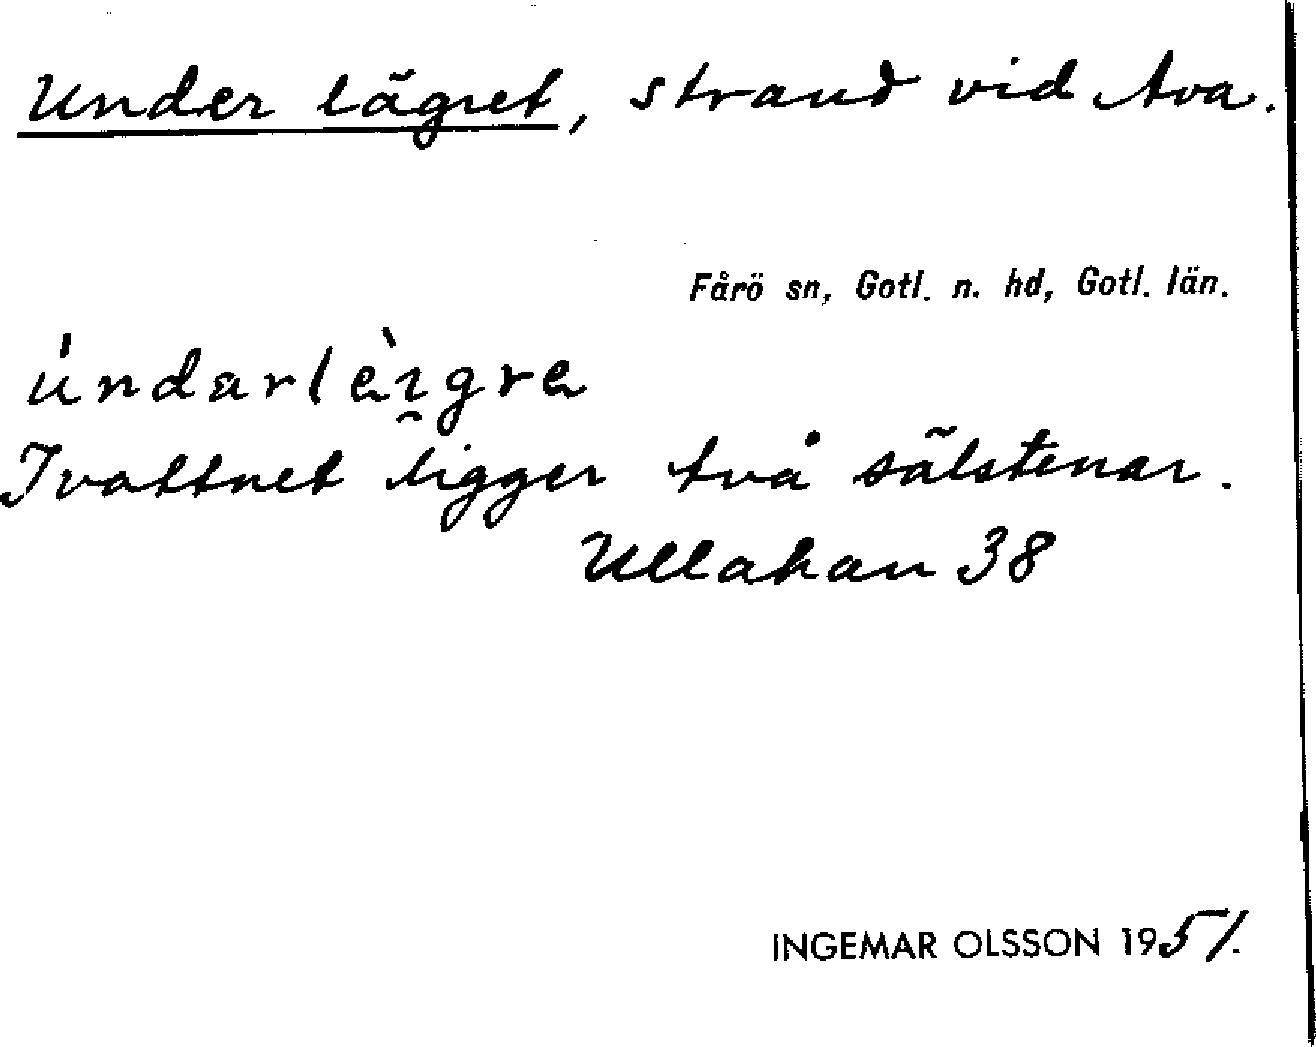 Under lägret, strand vid Ava.
Fårö sn, Gotl. n. hd, Gotl. län.
úndarlèɪgre
I vattnet ligger två sälstenar.
Ullahau 38
INGEMAR OLSSON 1951.